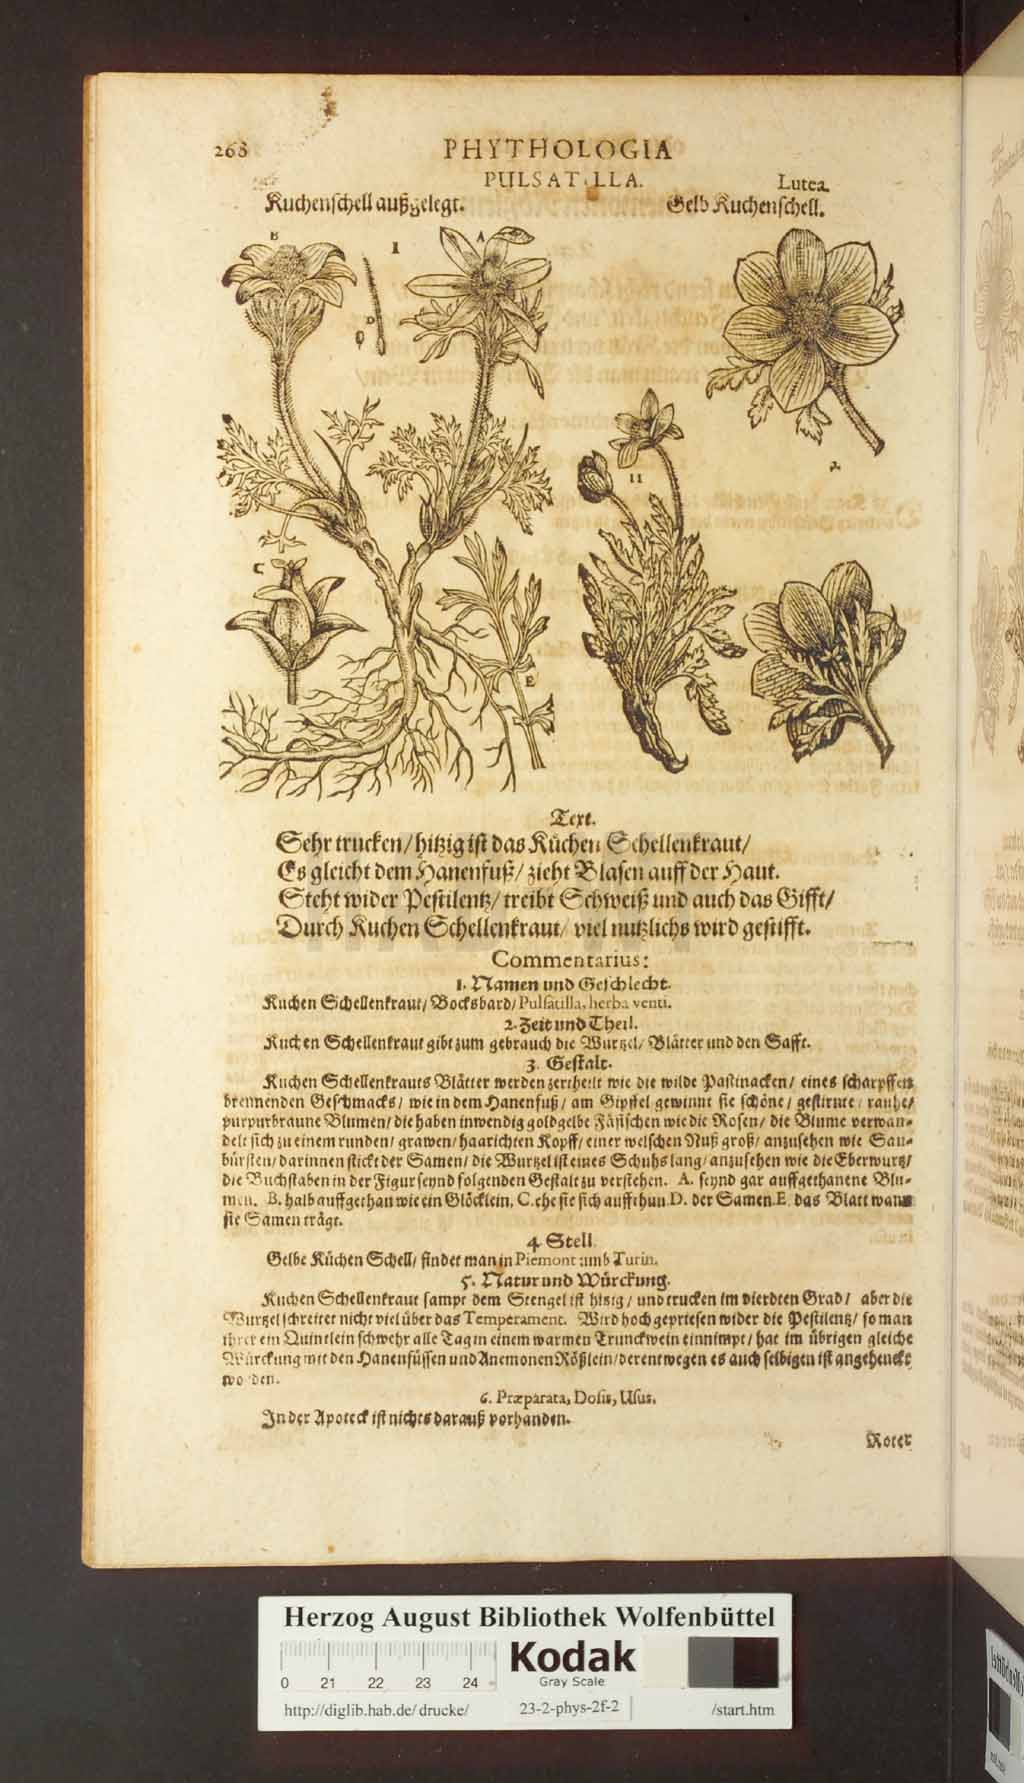 268
PHYTHOLOGIA
PULSATILLA.
Lutea
Kuchenschell außgelegt.
Gelb Kuchenschell.
B
I
A
D
II
C
E
2
Text.
Sehr trucken/ hitzig ist das Küchen Schellenkraut/
Es gleicht dem Hanenfuß/ zieht Blasen auff der Haut.
Steht wider Pestilentz/ treibt Schweiß und auch das Gifft/
Durch Kuchen Schellenkraut/ viel nutzlichs wird gestifft.
Commentarius:
1. Namen und Geschlecht.
Kuchen Schellenkraut/ Bocksbard/ Pulsatilla, herba venti.
2. Zeit und Theil.
Kuchen Schellenkraut gibt zum gebrauch die Wurtzel/ Blätter und den Safft.
3. Gestalt.
Kuchen Schellenkrauts Blätter werden zertheilt wie die wilde Pastinacken/ eines scharpffen
brennenden Geschmacks/ wie in dem Hanenfuß/ am Gipffel gewinnt sie schöne/ gestirnte/ rauhe/
purpurbraune Blumen/ die haben inwendig goldgelbe Fäsischen wie die Rosen/ die Blume verwan-
delt sich zu einem runden/ grawen/ haarichten Kopff/ einer welschen Nuß groß/ anzusehen wie Sau-
bürsten/ darinnen stickt der Samen/ die Wurtzel ist eines Schuhs lang/ anzusehen wie die Eberwurtz/
die Buchstaben in der Figur seynd folgenden Gestalt zu verstehen. A. seynd gar auffgethanene Blu-
men. B. halb auffgethan wie ein Glöcklein. C. ehe sie sich auffthun. D. der Samen. E. das Blatt wann
sie Samen trägt.
4. Stell.
Gelbe Küchen Schell/ findet man in Piemont umb Turin.
5. Natur und Würckung.
Kuchen Schellenkraut sampt dem Stengel ist hitzig/ und trucken im vierdten Grad/ aber die
Wurtzel schreitet nicht viel über das Temperament. Wird hoch gepriesen wider die Pestilentz/ so man
ihrer ein Quintlein schwehr alle Tag in einem warmen Trunck wein einnimpt/ hat im übrigen gleiche
Würckung mit den Hanenfüssen und Anemonen Rößlein/ derentwegen es auch selbigen ist angehenckt
worden.
6. Præparata, Dosis, Usus.
In der Apoteck ist nichts darauß vorhanden.
Roter
Herzog August Bibliothek Wolfenbüttel
0 21 22 23 24
Kodak
Gray Scale
http://diglib.hab.de/drucke/ 23-2-phys-2f-2 /start.htm